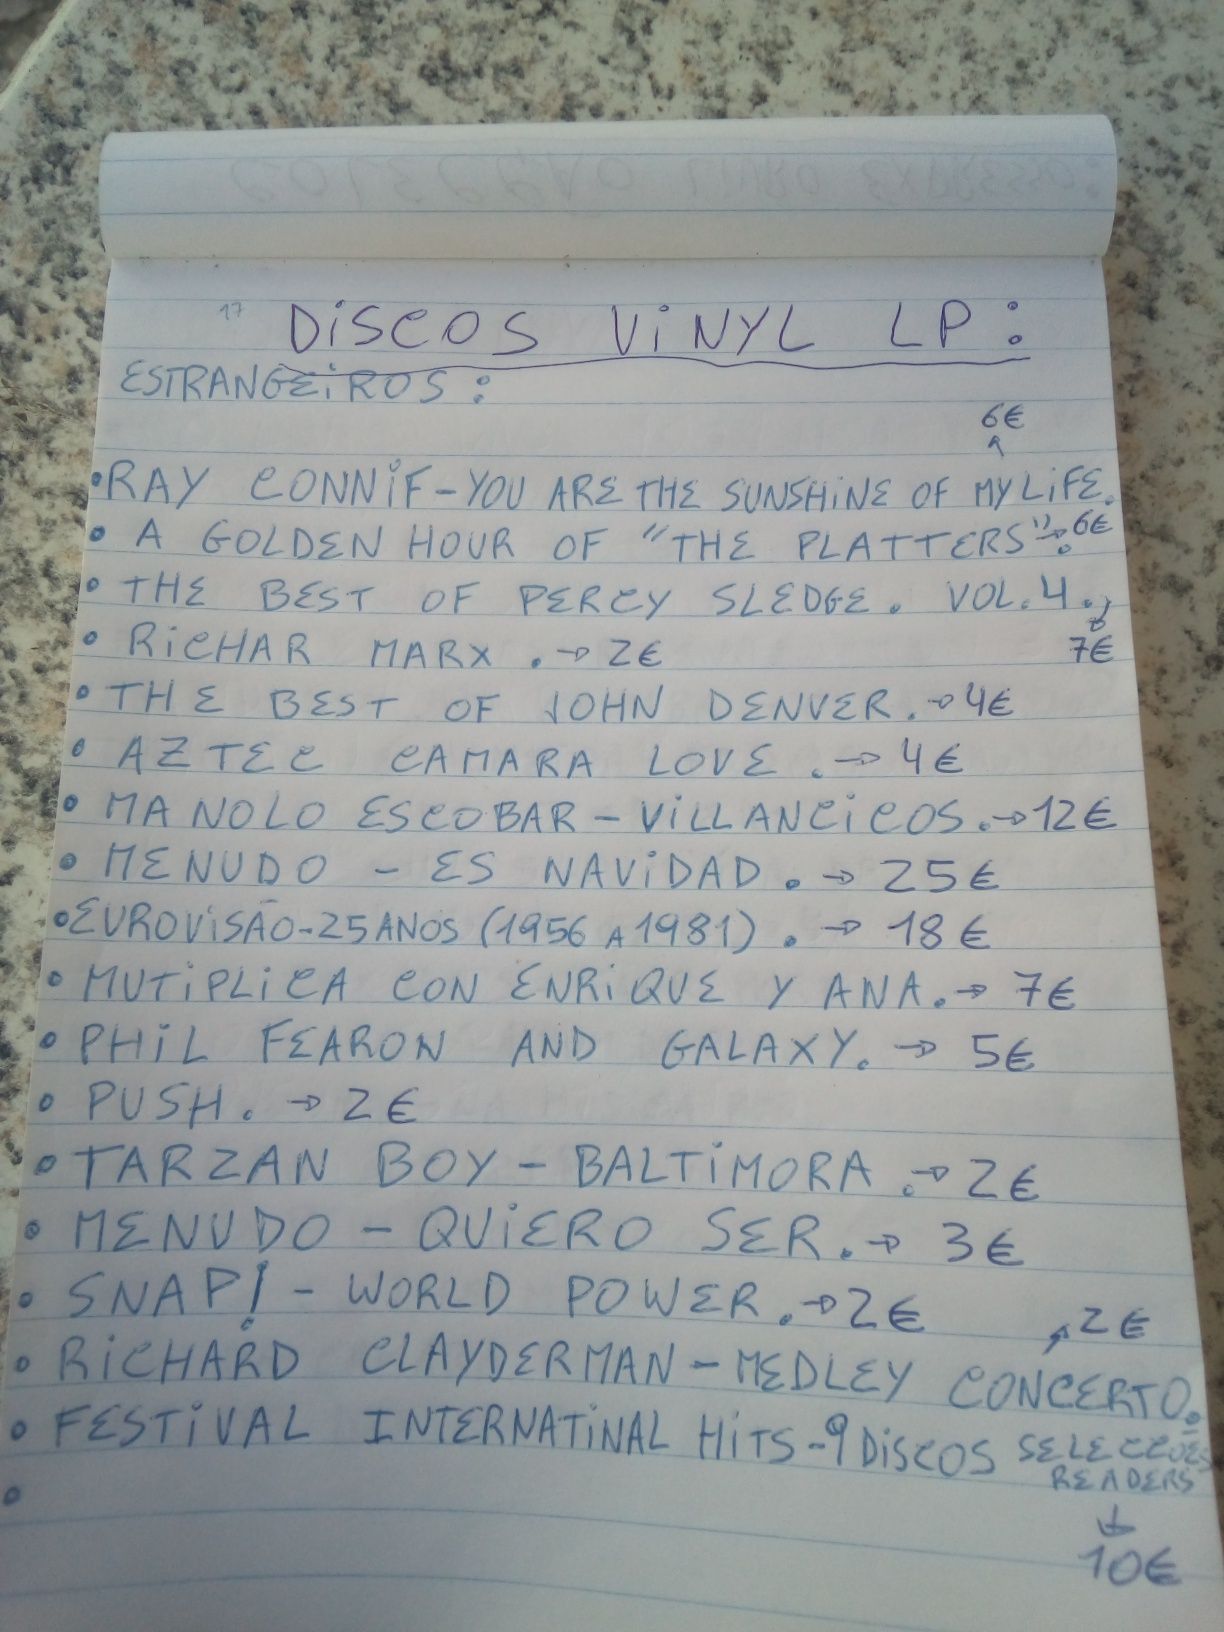 17 DiSCOS ViNYL LP:
ESTRANGEiROS:
6€
•RAY CONNiF-YOU ARE THE SUNSHiNE OF MY LiFE.
• A GOLDEN HOUR OF "THE PLATTERS". → 6€
• THE BEST OF PERCY SLEDGE. VOL.4. →
• RiCHAR MARX. → 2€ 7€
• THE BEST OF JOHN DENVER. → 4€
• AZTEC CAMARA LOVE. → 4€
• MANOLO ESCOBAR - ViLLANCiCOS. → 12€
• MENUDO - ES NAViDAD. → 25€
•EUROViSÃO-25 ANOS (1956 A 1981). → 18€
• MUTiPLiCA CON ENRiQUE Y ANA. → 7€
• PHiL FEARON AND GALAXY. → 5€
• PUSH. → 2€
• TARZAN BOY - BALTiMORA. → 2€
• MENUDO - QUiERO SER. → 3€
• SNAP! - WORLD POWER. → 2€
2€
• RiCHARD CLAYDERMAN - MEDLEY CONCERTO.
• FESTiVAL INTERNATiNAL HiTS-9 DiSCOS SELECCÕES
READERS
•
10€